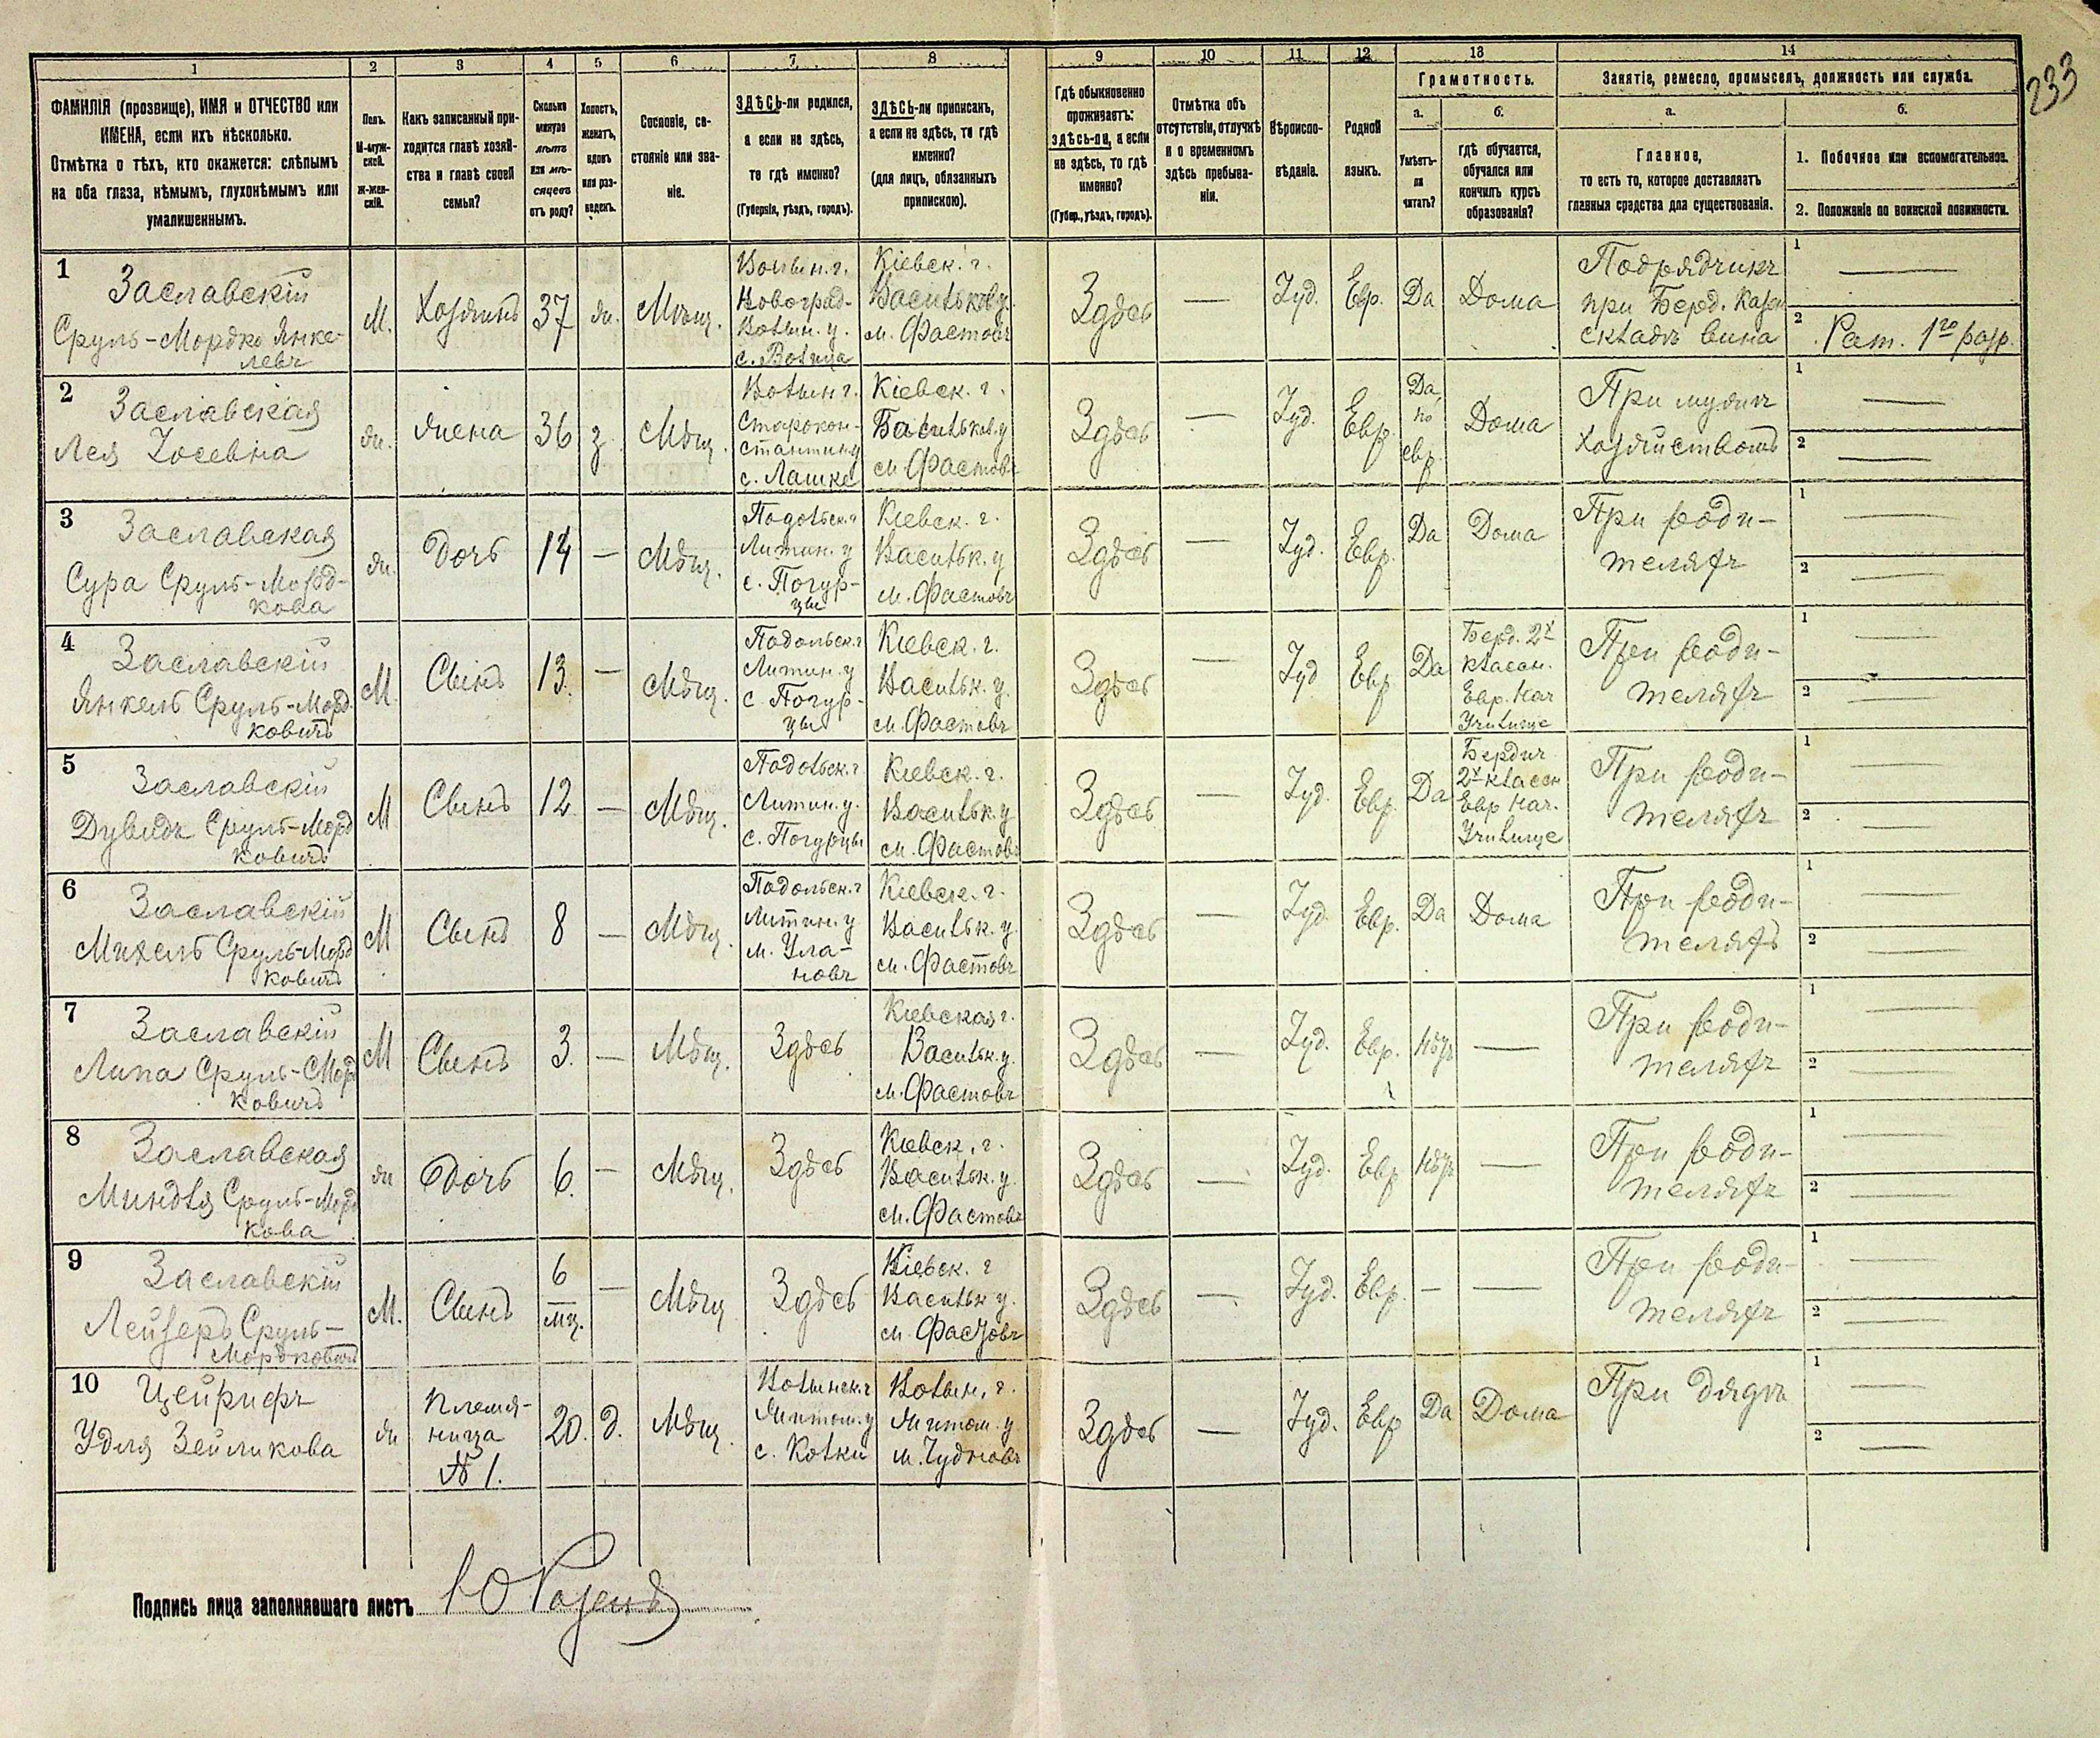 233
1 2 3 4 5 6 7 8 9 10 11 12 13 14
ФАМИЛІЯ (прозвище), ИМЯ и ОТЧЕСТВО или
ИМЕНА, если ихъ нѣсколько.
Отмѣтка о тѣхъ, кто окажется: слѣпымъ
на оба глаза, нѣмымъ, глухонѣмымъ или
умалишеннымъ.
Полъ.
М-муж-
ской.
Ж-жен-
скій.
Какъ записанный при-
ходится главѣ хозяй-
ства и главѣ своей
семьи?
Сколько
минуло
лѣтъ
или мѣ-
сяцевъ
отъ роду?
Холостъ,
женатъ,
вдовъ
или раз-
веденъ.
Сословіе, со-
стояніе или зва-
ніе.
ЗДѢСЬ-ли родился,
а если не здѣсь,
то гдѣ именно?
(Губернія, уѣздъ, городъ).
ЗДѢСЬ-ли приписанъ,
а если не здѣсь, то гдѣ
именно?
(для лицъ, обязанныхъ
припискою).
Гдѣ обыкновенно
проживаетъ:
здѣсь-ли, а если
не здѣсь, то гдѣ
именно?
(Губер., уѣздъ, городъ).
Отмѣтка объ
отсутствіи, отлучкѣ
и о временномъ
здѣсь пребыва-
ніи.
Вѣроиспо-
вѣданіе.
Родной
языкъ.
Грамотность.
а.
Умѣетъ-
ли
читать?
б.
гдѣ обучается,
обучался или
кончилъ курсъ
образованія?
Занятіе, ремесло, промыселъ, должность или служба.
а.
Главное,
то есть то, которое доставляетъ
главныя средства для существованія.
б.
1. Побочное или вспомогательное.
2. Положеніе по воинской повинности.
1 Заславскій
Сруль-Мордко Янке-
левъ
М.
Хозяинъ
37
ж.
Мѣщ.
Волын. г.
Новоград-
Волын. у.
с. Волица
Кіевск. г.
Васильков у.
м. Фастовъ
Здѣсь
—
Іуд.
Евр.
Да
Дома
Подрядчикъ
при Берд. Казен
складѣ вина
1 —
2 Рат. 1го разр.
2 Заславская
Лея Іосевна
ж.
жена
36
з.
Мѣщ.
Волын г.
Старокон-
стантин у
с. Лашке
Кіевск. г.
Васильков. у
м. Фастовъ
Здѣсь
—
Іуд.
Евр.
Да,
по
евр.
Дома
При мужѣ
хозяйствомъ
1 —
2 —
3 Заславская
Сура Сруль-Морд-
кова
ж.
Дочь
14
—
Мѣщ.
Подольск. г
Литин. у
с. Погур-
цы
Кіевск. г.
Васильк. у
м. Фастовъ
Здѣсь
—
Іуд.
Евр.
Да
Дома
При роди-
теляхъ
1 —
2 —
4 Заславскій
Янкель Сруль-Морд
ковичъ
М.
Сынъ
13.
—
Мѣщ.
Подольск. г
Литин. у
с Погур-
цы
Кіевск. г.
Васильк. у.
м. Фастовъ
Здѣсь
—
Іуд
Евр
Да
Берд. 2х
классн.
Евр. Нач
Училище
При роди-
теляхъ
1 —
2 —
5 Заславскій
Дувидъ Сруль-Морд
ковичъ
М
Сынъ
12
—
Мѣщ.
Подольск. г
Литин. у.
с. Погурцы
Кіевск. г.
Васильк. у
м. Фастовъ
Здѣсь
—
Іуд.
Евр.
Да
Бердич
2х классн
Евр Нач.
Училище
При роди-
теляхъ
1 —
2 —
6 Заславскій
Михель Сруль-Морд
ковичъ
М
Сынъ
8
—
Мѣщ.
Подольск. г
Литин. у
м. Ула-
новъ
Кіевск. г.
Васильк. у
м. Фастовъ
Здѣсь
—
Іуд.
Евр.
Да
Дома
При роди-
теляхъ
1 —
2 —
7 Заславскій
Липа Сруль-Мор
ковичъ
М
Сынъ
3.
—
Мѣщ.
Здѣсь
Кіевская г.
Васильк. у.
м. Фастовъ
Здѣсь
—
Іуд.
Евр.
Нѣтъ
—
При роди-
теляхъ
1 —
2 —
8 Заславская
Миндля Сруль-Морд
кова
ж
Дочь
6.
—
Мѣщ.
Здѣсь
Кіевск. г.
Васильк. у.
м. Фастовъ
Здѣсь
—
Іуд.
Евр
Нѣтъ
—
При роди-
теляхъ
1 —
2 —
9 Заславскій
Лейзеръ Сруль-
Мордковичъ
М.
Сынъ
6
мц.
—
Мѣщ
Здѣсь
Кіевск. г
Васильк у.
м. Фастовъ
Здѣсь
—
Іуд.
Евр.
—
—
При роди-
теляхъ
1 —
2 —
10 Цейрифъ
Удля Зейликова
ж
племя-
ница
№ 1.
20.
д.
Мѣщ.
Волынск. г
Житом. у
с. Колки
Волын. г.
Житом. у
м. Чудновъ
Здѣсь
—
Іуд.
Евр
Да
Дома
При дядѣ
1 —
2 —
Подпись лица заполнявшаго листъ Ю Розенъ